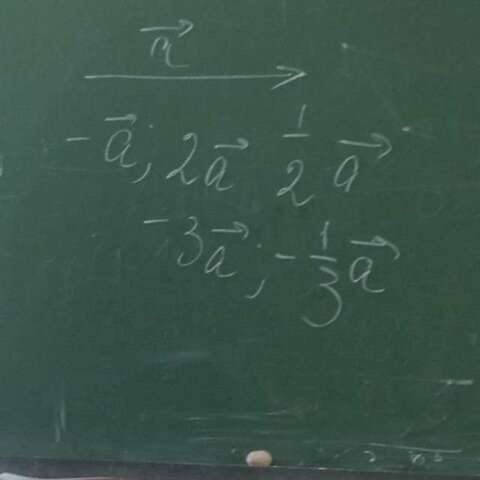 a⃗
-a⃗; 2a⃗ 1/2 a⃗
-3a⃗; -1/3 a⃗